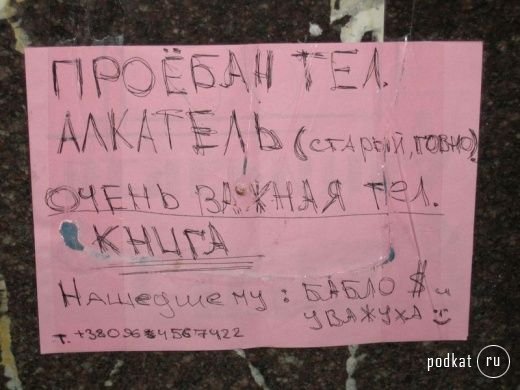 ПРОЁБАН ТЕЛ.
АЛКАТЕЛЬ (СТАРЫЙ, ГОВНО)
ОЧЕНЬ ВАЖНАЯ ТЕЛ.
КНИГА
Нашедшему: БАБЛО $ и
УВАЖУХА :)
podkat ru